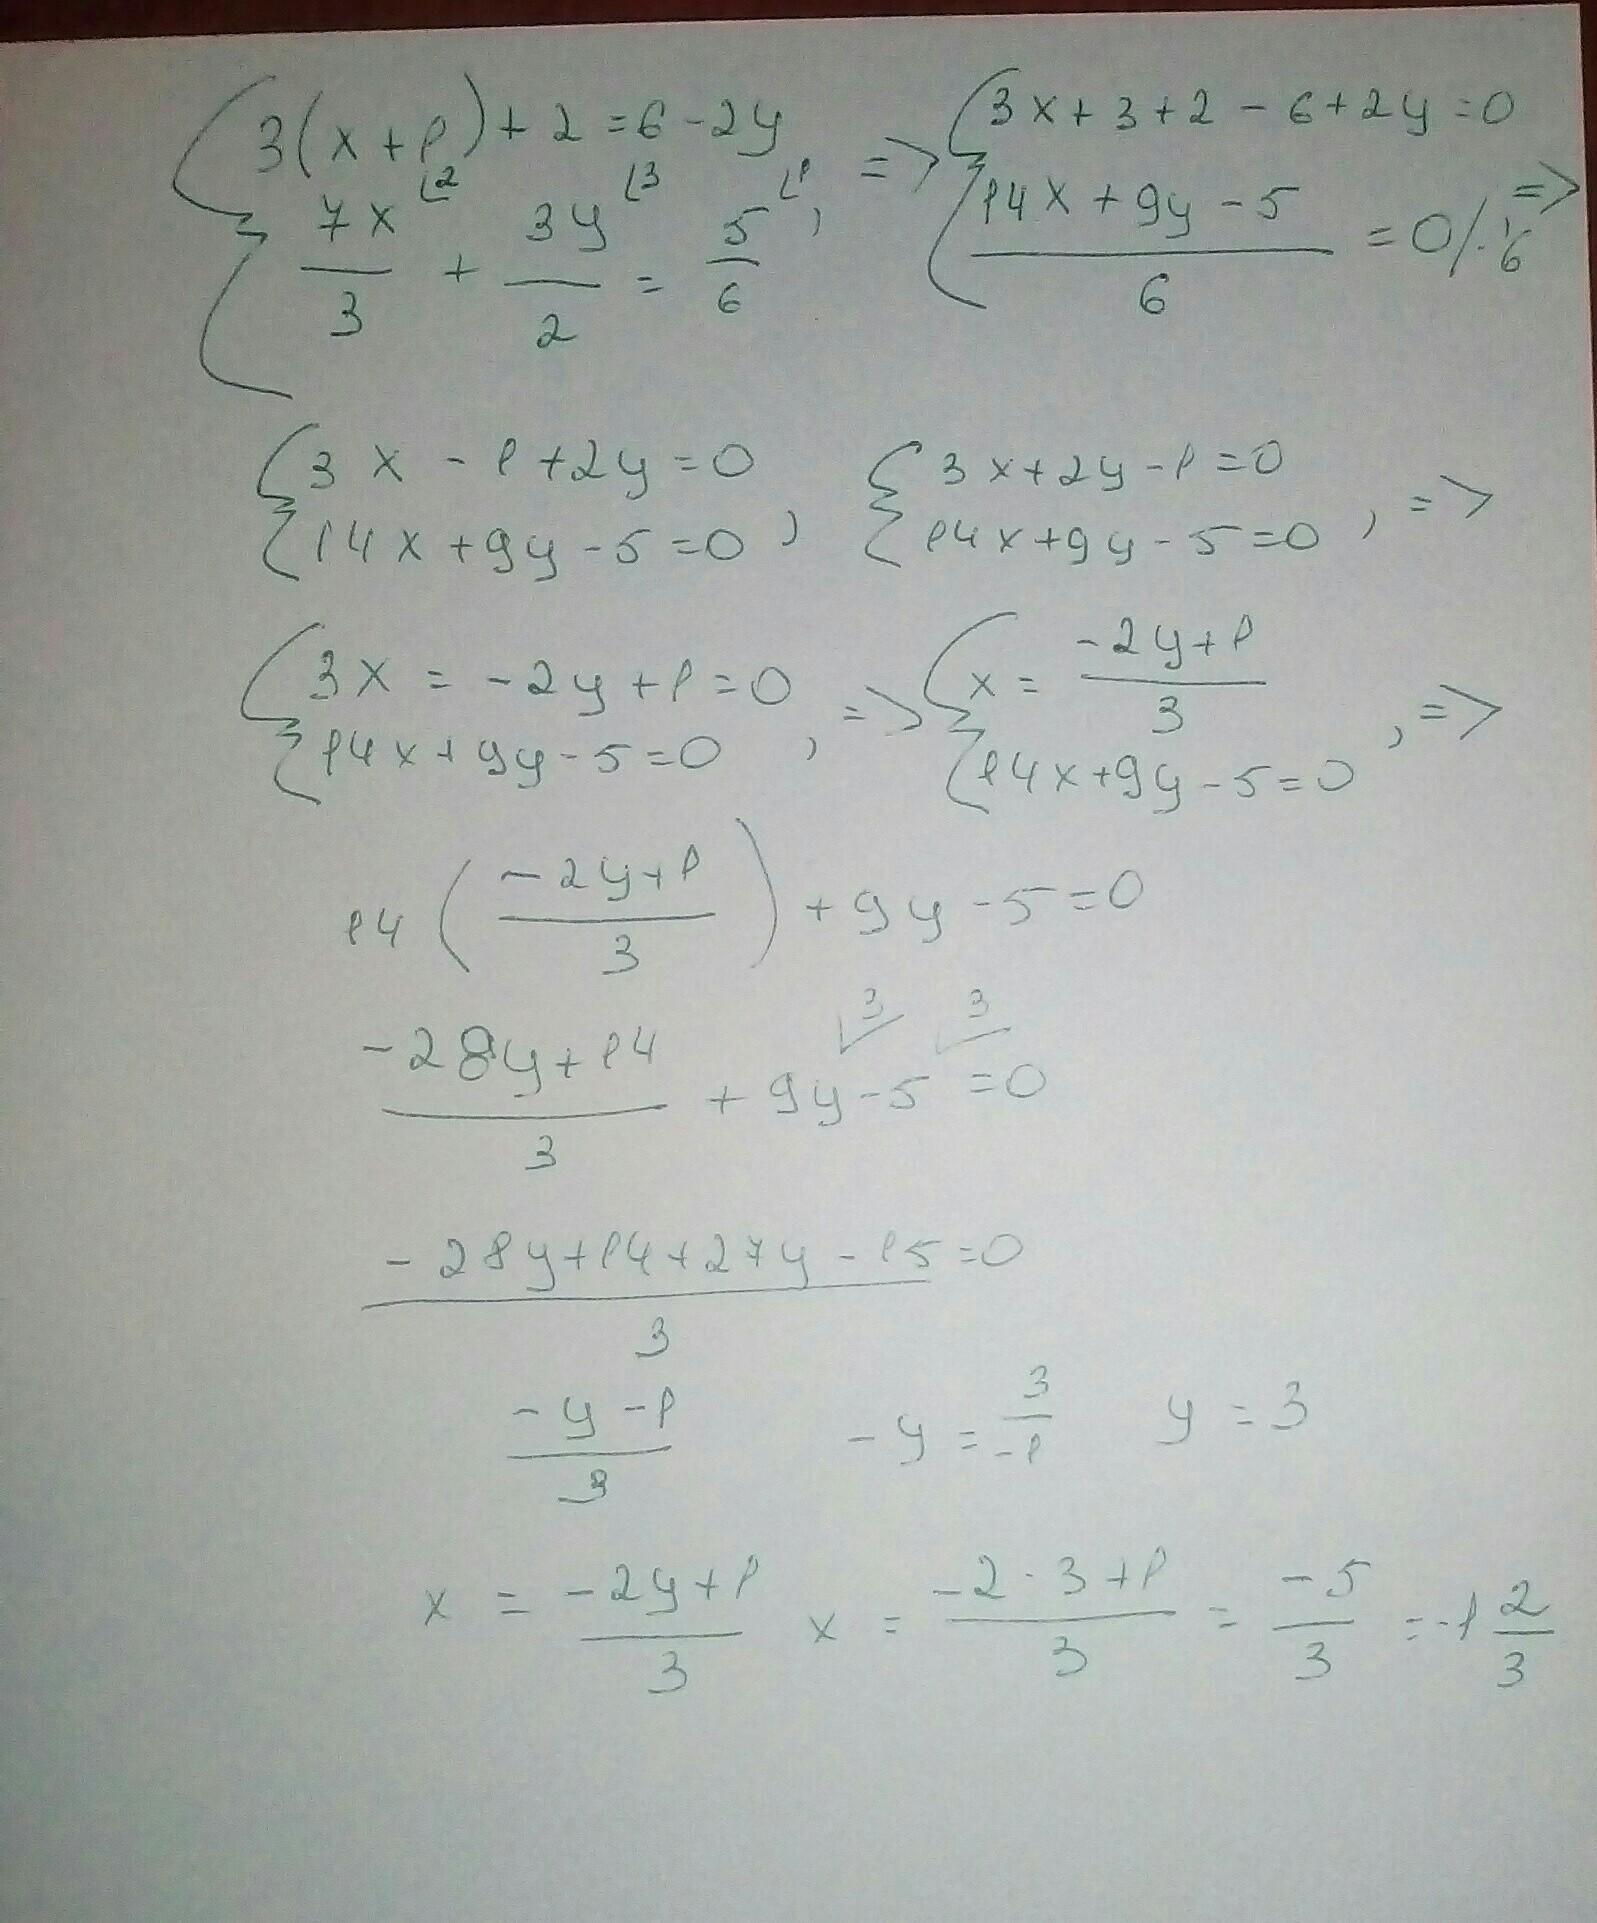 { 3(x+1)+2=6-2y
7x/3 ⌊2 + 3y/2 ⌊3 = 5/6 ⌊1 , =>
{ 3x+3+2-6+2y=0
(14x+9y-5)/6 = 0 /·6 =>
{ 3x-1+2y=0
14x+9y-5=0 ,
{ 3x+2y-1=0
14x+9y-5=0 , =>
{ 3x=-2y+1=0
14x+9y-5=0 , =>
{ x=(-2y+1)/3
14x+9y-5=0 , =>
14((-2y+1)/3)+9y-5=0
3 3
(-28y+14)/3+9y-5=0
(-28y+14+27y-15)/3=0
(-y-1)/3 -y=3/-1 y=3
x=(-2y+1)/3 x=(-2·3+1)/3=-5/3=-1 2/3